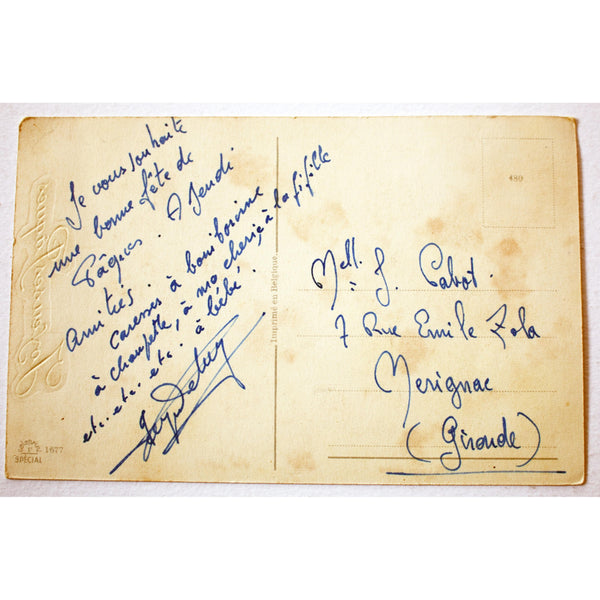 Je vous souhaite
une bonne fête de
Pâques. A Jeudi
Amitiés.
Caresses à
à choupette, à ma cherie, à la fifille
etc. etc. etc. à bébé.
Imprimé en Belgique.
1677
SPÉCIAL
480
Melle J. Cabot.
7 Rue Emile Zola
Merignac
(Gironde)